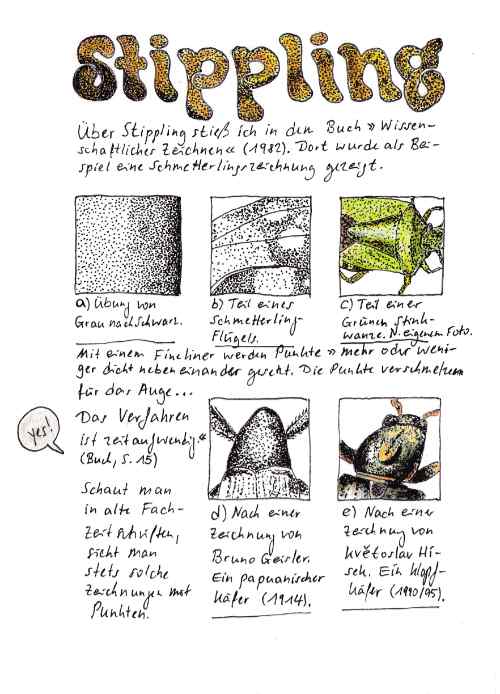 Stippling
Über Stippling stieß ich in dem Buch »Wissen-
schaftliches Zeichnen« (1982). Dort wurde als Bei-
spiel eine Schmetterlingszeichnung gezeigt.
a) Übung von
Grau nach Schwarz.
b) Teil eines
Schmetterling-
Flügels.
c) Teil einer
Grünen Stink-
wanze. N. eigenem Foto.
Mit einem Fineliner werden Punkte »mehr oder weni-
ger dicht nebeneinander gesetzt. Die Punkte verschmelzen
für das Auge...
Das Verfahren
ist zeitaufwendig.«
(Buch, S. 15)
yes!
Schaut man
in alte Fach-
zeitschriften,
sieht man
stets solche
Zeichnungen mit
Punkten.
d) Nach einer
Zeichnung von
Bruno Geisler.
Ein papuanischer
Käfer (1914).
e) Nach einer
Zeichnung von
Květoslav Hí-
sek. Ein Klopf-
käfer (1990/95).